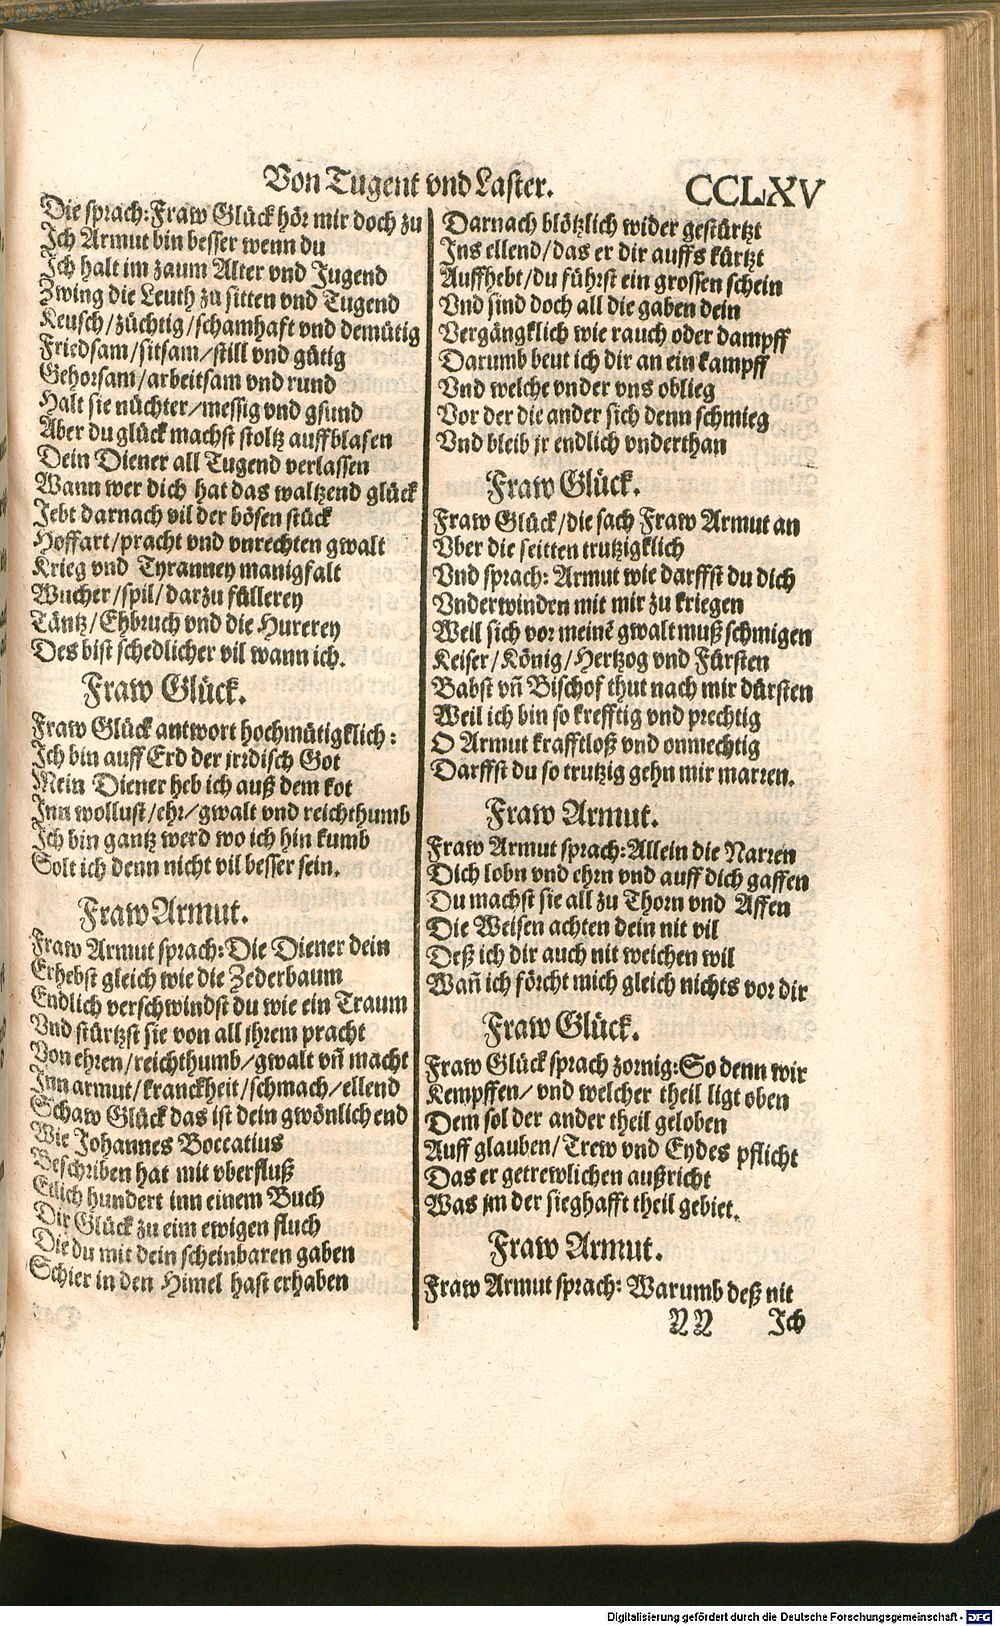 Von Tugent vnd Laster.
CCLXV
Die sprach: Fraw Glück hör mir doch zu
Ich Armut bin besser wenn du
Ich halt im zaum Alter vnd Jugend
Zwing die Leuth zu sitten vnd Tugend
Keusch/züchtig/schamhaft vnd demütig
Friedsam/sitsam/still vnd gütig
Gehorsam/arbeitsam vnd rund
Halt sie nüchter/messig vnd gsund
Aber du glück machst stoltz auffblasen
Dein Diener all Tugend verlassen
Wann wer dich hat das waltzend glück
Jebt darnach vil der bösen stück
Hoffart/pracht vnd vnrechten gwalt
Krieg vnd Tyranney manigfalt
Wucher/spil/darzu füllerey
Täntz/Ehbruch vnd die Hurerey
Des bist schedlicher vil wann ich.
Fraw Glück.
Fraw Glück antwort hochmütigklich:
Ich bin auff Erd der jrrdisch Got
Mein Diener heb ich auß dem kot
Inn wollust/ehr/gwalt vnd reichthumb
Ich bin gantz werd wo ich hin kumb
Solt ich denn nicht vil besser sein.
Fraw Armut.
Fraw Armut sprach: Die Diener dein
Erhebst gleich wie die Zederbaum
Endlich verschwindst du wie ein Traum
Vnd stürtzst sie von all jhrem pracht
Von ehren/reichthumb/gwalt vn̄ macht
Inn armut/kranckheit/schmach/ellend
Schaw Glück das ist dein gwönlich end
Wie Johannes Boccatius
Beschriben hat mit vberfluß
Etlich hundert inn einem Buch
Dir Glück zu eim ewigen fluch
Die du mit dein scheinbaren gaben
Schier in den Himel hast erhaben
Darnach blötzlich wider gestürtzt
Ins ellend/das er dir auffs kürtzt
Auffhebt/du führst ein grossen schein
Vnd sind doch all die gaben dein
Vergängklich wie rauch oder dampff
Darumb beut ich dir an ein kampff
Vnd welche vnder vns oblieg
Vor der die ander sich denn schmieg
Vnd bleib jr endlich vnderthan
Fraw Glück.
Fraw Glück/die sach Fraw Armut an
Vber die seitten trutzigklich
Vnd sprach: Armut wie darffst du dich
Vnderwinden mit mir zu kriegen
Weil sich vor meinē gwalt muß schmigen
Keiser/König/Hertzog vnd Fürsten
Babst vn̄ Bischof thut nach mir dürsten
Weil ich bin so krefftig vnd prechtig
O Armut krafftloß vnd onmechtig
Darffst du so trutzig gehn mir marren.
Fraw Armut.
Fraw Armut sprach: Allein die Narren
Dich lobn vnd ehrn vnd auff dich gaffen
Du machst sie all zu Thorn vnd Affen
Die Weisen achten dein nit vil
Deß ich dir auch nit weichen wil
Wan̄ ich förcht mich gleich nichts vor dir
Fraw Glück.
Fraw Glück sprach zornig: So denn wir
Kempffen/vnd welcher theil ligt oben
Dem sol der ander theil geloben
Auff glauben/Trew vnd Eydes pflicht
Das er getrewlichen außricht
Was jm der sieghafft theil gebiet.
Fraw Armut.
Fraw Armut sprach: Warumb deß nit
YY Ich
Digitalisierung gefördert durch die Deutsche Forschungsgemeinschaft - DFG